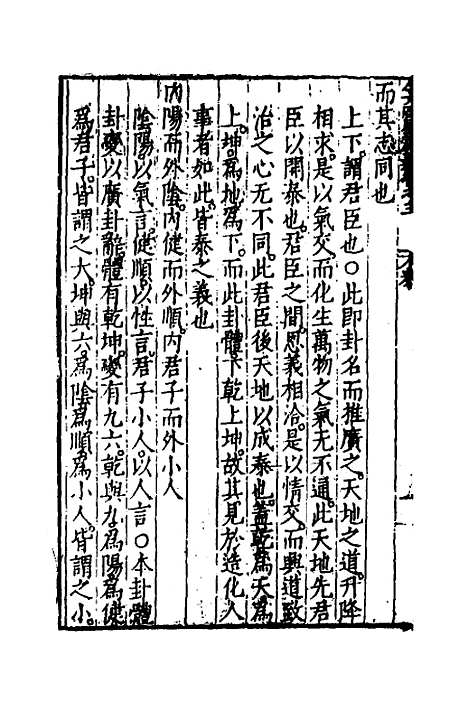 而其志同也
上下謂君臣也○此即卦名而推廣之天地之道升降
相求是以氣交而化生萬物之氣無不通此天地先君
臣以開泰也君臣之間恩義相洽是以情交而興道致
治之心无不同此君臣後天地以成泰也蓋乾爲天爲
上坤爲地爲下而此卦體下乾上坤故其見於造化人
事者如此皆泰之義也
内陽而外陰内健而外順内君子而外小人
陰陽以氣言健順以性言君子小人以人言○本卦體
卦變以廣卦辭體有乾坤變有九六乾與九爲陽爲健
爲君子皆謂之大坤與六爲陰爲順爲小人皆謂之小